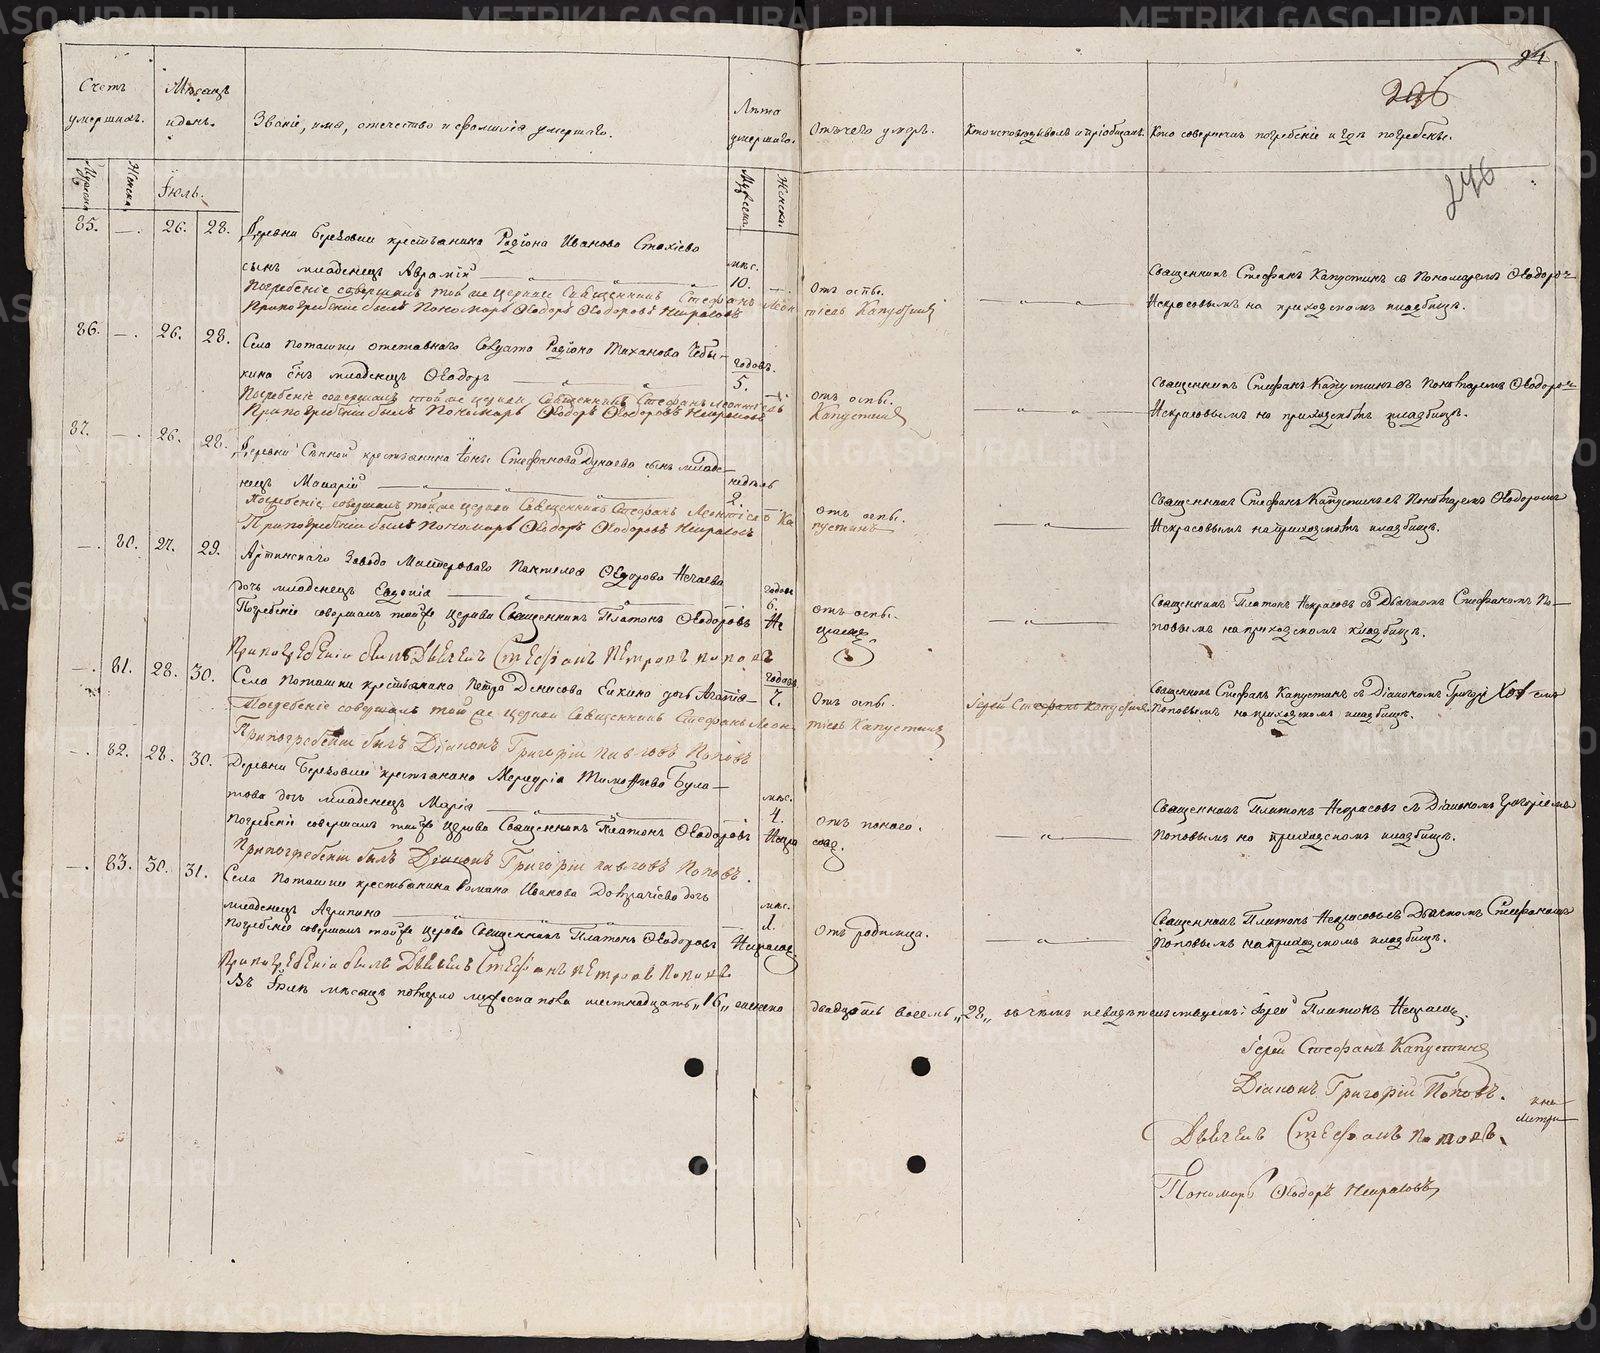 94
226
246
Счетъ умершихъ.
Мѣсяцъ и день.
Званіе, имя, отечество и фамилія умершаго.
Лѣта умершаго.
Отъ чего умеръ.
Кто исповѣдывалъ и пріобщалъ.
Кто совершилъ погребеніе и гдѣ погребены.
Мужеска.
Женска.
Іюль.
Мужеска.
Женска.
85. —. 26. 28. Деревни Березовки крестьянина Родіона Иванова Стахіева
сынъ младенецъ Аврамій мѣс. 10. —. Отъ оспы.
Священникъ Стефанъ Капустинъ съ Пономаремъ Ѳедоро-
Некрасовымъ на приходскомъ кладбищѣ.
Погребеніе совершалъ той же церкви Священникъ Стефанъ Леонтіевъ Капустинъ
При погребеніи былъ Пономарь Ѳеодоръ Ѳеодоровъ Некрасовъ
86. —. 26. 28. Села Поташки отставнаго Солдата Родіона Чебы-
кина сынъ младенецъ Ѳеодоръ годовъ. 5. — отъ оспы.
Священникъ Стефанъ Капустинъ съ Пономаремъ Ѳеодоро-
Некрасовымъ на приходскомъ кладбищѣ.
Погребеніе совершалъ той же церкви Священникъ Стефанъ Леонтіевъ Капустинъ
При погребеніи былъ Пономарь Ѳеодоръ Ѳеодоровъ Некрасовъ
87. —. 26. 28. Деревни Сѣнной крестьянина Іоны Стефанова Дунаева сынъ младе-
нецъ Макарій недѣль 2. — отъ оспы.
Священникъ Стефанъ Капустинъ съ Пономаремъ Ѳеодоромъ
Некрасовымъ на приходскомъ кладбищѣ.
Погребеніе совершалъ той же церкви Священникъ Стефанъ Леонтіевъ Капустинъ
При погребеніи былъ Пономарь Ѳеодоръ Ѳеодоровъ Некрасовъ
—. 80. 27. 29. Артинскаго Завода Мастероваго Пантелея Ѳедорова Нечаева
дочь младенецъ Евдокія годовъ 6. отъ оспы.
Священникъ Платонъ Некрасовъ съ Дьячкомъ Стефаномъ По-
повымъ на приходскомъ кладбищѣ.
Погребеніе совершалъ той же церкви Священникъ Платонъ Ѳеодоровъ Некрасовъ
При погребеніи былъ Дьячекъ Стефанъ Петровъ Поповъ
—. 81. 28. 30. Села Поташки крестьянина Петра Денисова Екина дочь Агапія годовъ 7. Отъ оспы. Іерей Стефанъ Капустинъ
Священникъ Стефанъ Капустинъ съ Діакономъ Григор
Поповымъ на приходскомъ кладбищѣ.
Погребеніе совершалъ той же церкви Священникъ Стефанъ Леонтіевъ Капустинъ
При погребеніи былъ Діаконъ Григорій Павловъ Поповъ
—. 82. 28. 30. Деревни Березовки крестьянина Меркурія Тимоѳѣева Була-
това дочь младенецъ Марія мѣс. 4. отъ поноса.
Священникъ Платонъ Некрасовъ съ Діакономъ Григоріемъ
Поповымъ на приходскомъ кладбищѣ.
Погребеніе совершалъ той же церкви Священникъ Платонъ Ѳеодоровъ Некрасовъ.
При погребеніи былъ Діаконъ Григорій Павловъ Поповъ.
—. 83. 30. 31. Села Поташки крестьянина Романа Иванова дочь
младенецъ Агрипина мѣс. 1. Отъ родимца.
Священникъ Платонъ Некрасовъ съ Дьячкомъ Стефаномъ
Поповымъ на приходскомъ кладбищѣ.
Погребеніе совершалъ той же церкви Священникъ Платонъ Ѳеодоровъ Некрасовъ
При погребеніи былъ Дьячекъ Стефанъ Петровъ Поповъ
Въ Іюлѣ мѣсяцѣ померло мужеска пола шестнадцать „16„ а женска двадцать восемь „28„ въ чемъ и свидѣтельствуемъ: Іерей Платонъ Некрасовъ.
Іерей Стефанъ Капустинъ
Діаконъ Григорій Поповъ.
Дьячекъ Стефанъ Поповъ.
Пономарь Ѳеодоръ Некрасовъ
METRIKI.GASO-URAL.RU